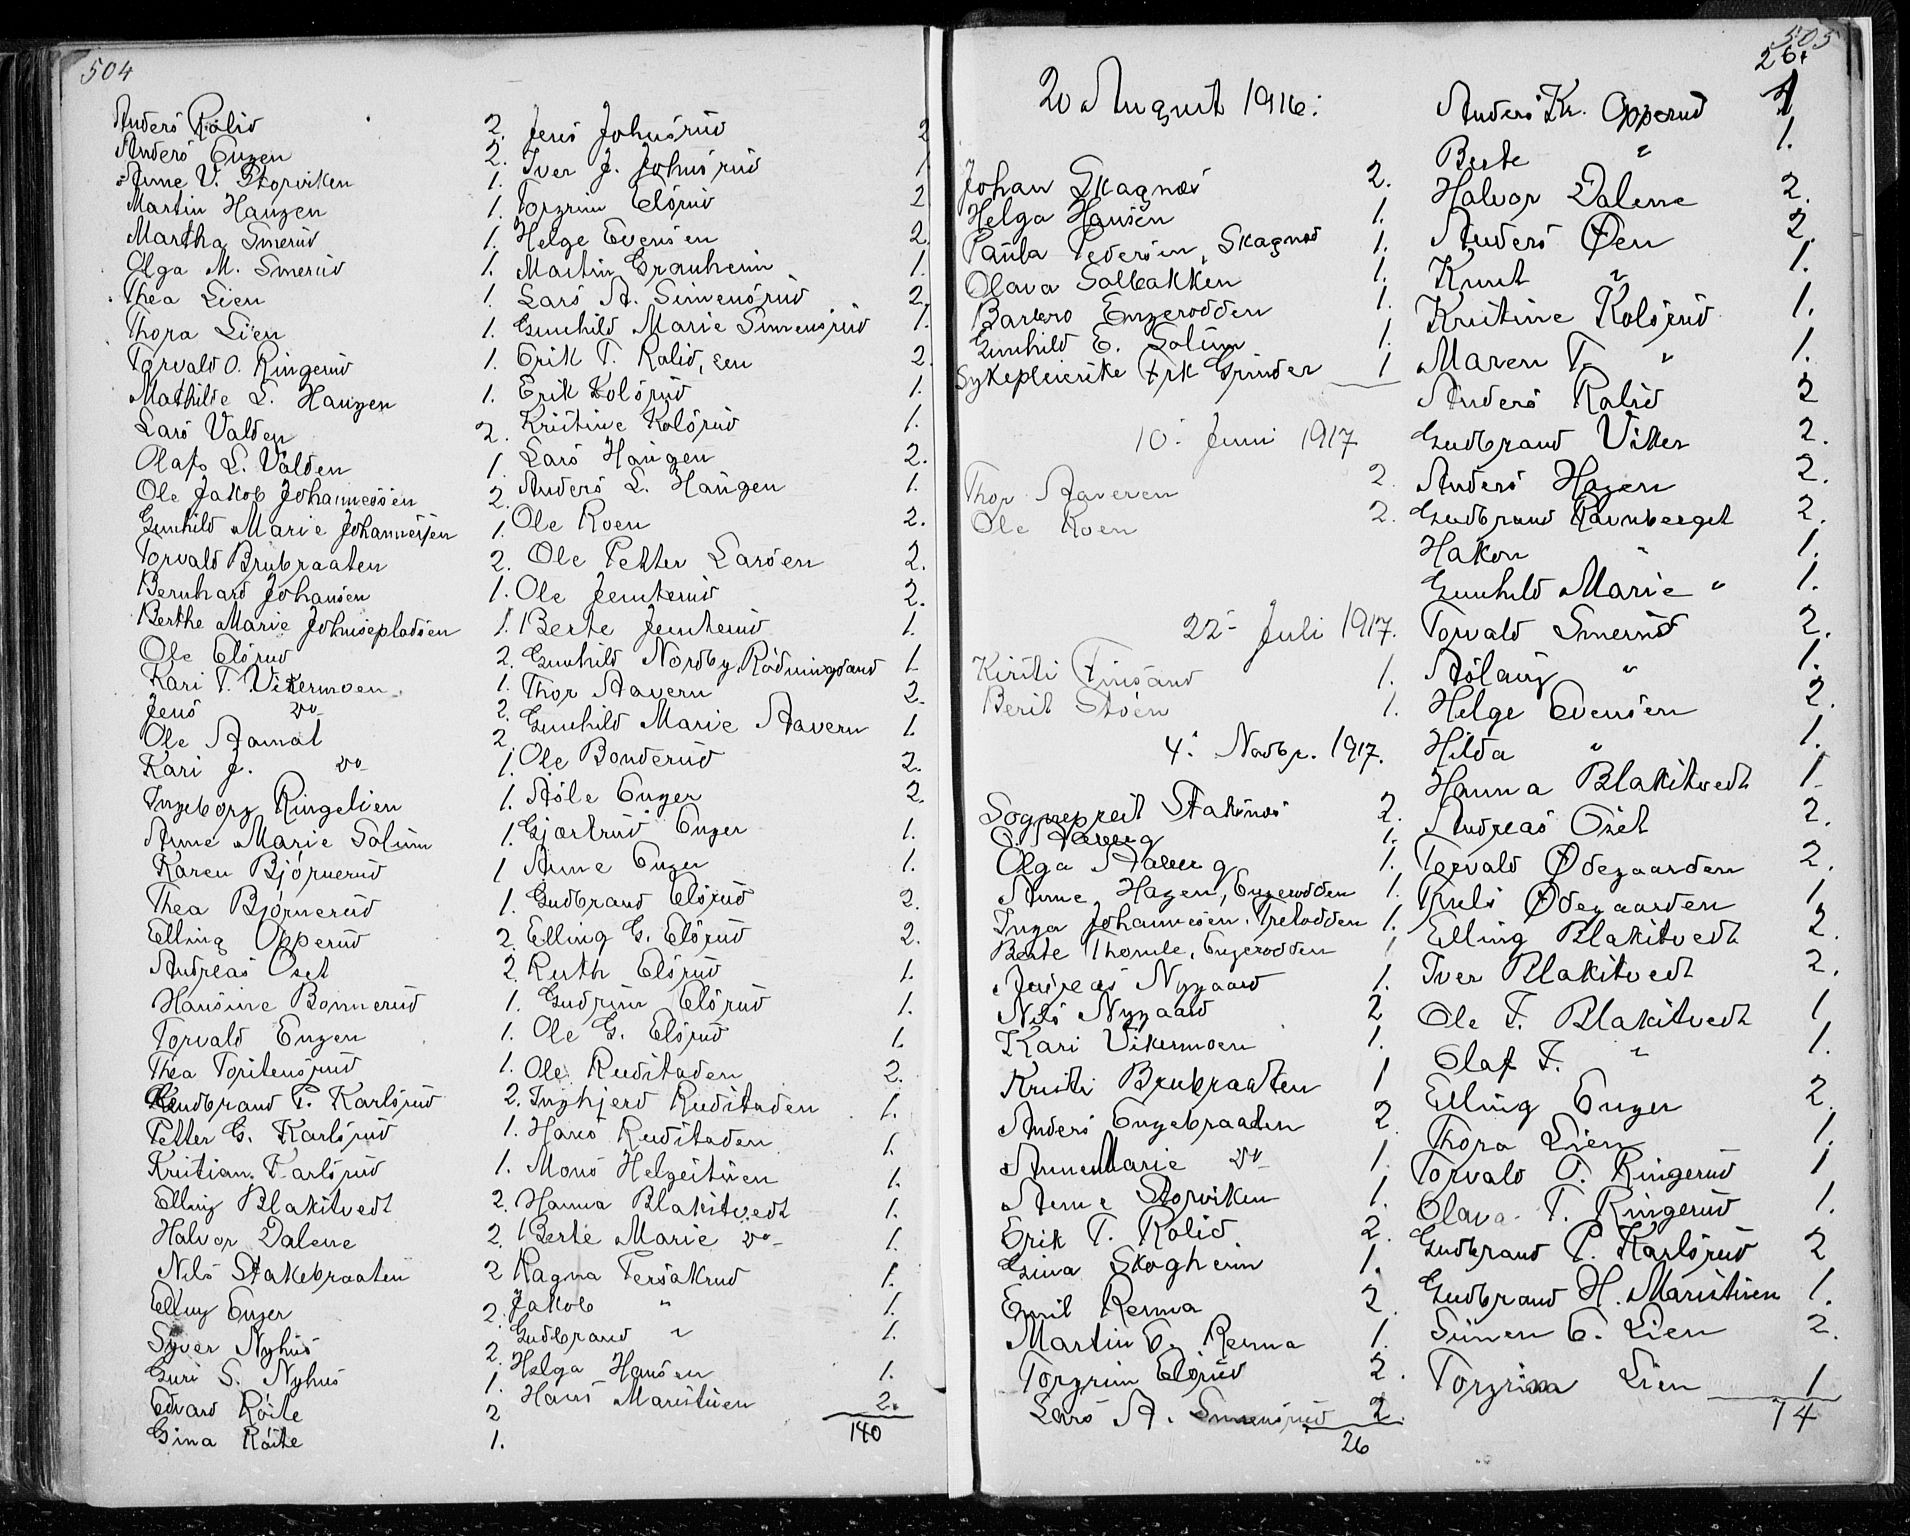 504
Anders Rølid 2.
Anders Enger 2.
Anne V. Storviken 1.
Martin Haugen 1.
Martha Smerud 1.
Olga M. Smerud 1.
Thea Lien 1.
Thora Lien 1.
Torvald O. Ringerud 1.
Mathilde L. Haugen 1.
Lars Valden 2.
Olaf L. Valden 1.
Ole Jakob Johannessen 2.
Gunhild Marie Johannessen 1.
Torvald Brubraaten 2.
Bernhard Johansen 1.
Berthe Marie Johnsepladsen 1.
Ole Elsrud 2.
Kari T. Vikermoen 1.
Jens do 2.
Ole Aamot 2.
Kari J. do 1.
Ingeborg Ringelien 1.
Anne Marie Solum 1.
Karen Bjørnerud 1
Thea Bjørnerud 1.
Elling Opperud 2.
Andreas Oset 2.
Hansine Bonnerud 1.
Torvald Engen 1.
Thea Toritensrud 1.
Gudbrand P. Karlsrud 2.
Petter G. Karlsrud 1.
Kristian Karlsrud 1.
Elling Blakstvedt 2.
Halvor Dalene 2.
Nils Stakebraaten 2
Elling Enger 2.
Syver Nyhus 2.
Guri S. Nyhus 1.
Edvard Röste 2
Gina Röste 1.
Jens Johnsrud 2
Iver J. Johnsrud 1.
Torgrim Elsrud 2
Helge Evensen 2.
Martin Granheim 1.
Lars A. Simensrud 2.
Gunhild Marie Simensrud 1.
Erik T. Rolid, sen 2.
Erik Kolsrud 1.
Kristine Kolsrud 1.
Lars Haugen 2.
Anders L. Haugen 1.
Ole Roen 2.
Ole Petter Larsen 2.
Ole Jemterud 2.
Berte Jemterud 1.
Gunhild Nordby, Rødningsand 1.
Thor Aavern 2.
Gunhild Marie Aavern 1.
Ole Bonderud 2.
Asle Enger 2.
Gjertrud Enger 1.
Anne Enger 1.
Gudbrand Elsrud 2.
Elling G. Elsrud 2.
Ruth Elsrud 1.
Gudrun Elsrud 1.
Ole G. Elsrud 1.
Ole Rudstaden 2.
Ingbjerd Rudstaden 1.
Hans Rudstaden 1.
Mons Helgestuen 1.
Hanna Blakstvedt 1.
Berte Marie do 1.
Ragna Tersakrud 1.
Jakob " 1.
Gudbrand " 1.
Helga Hansen 1.
Hans Maristuen 2.
140
505
20 August 1916:
Johan Skagnæs 2.
Helga Hansen 1.
Paula Pedersen, Skagnæs 1.
Olava Solbakken 1.
Barbro Engerodden 1.
Gunhild E. Solum 1.
Sykepleierske Frk Grinder 1
10. Juni 1917
Thor Aaveren 2.
Ole Roen 2.
22. Juli 1917.
Kirsti Finsand 1.
Berit Støen 1.
4. Novbr. 1917.
Sogneprest Stakśnæs 2.
1.
Olga Aaberg 1.
Anne Hagen, Engerodden 1.
Inga Johannesen, Trelodden 1.
Berte Thomle, Engerodden 1
Andreas Nygaard 1.
Nils Nygaard 2
Kari Vikermoen 1.
Kristi Brubraaten 1
Anders Engebraaten 2.
Anne Marie do 1.
Anne Storviken 1.
Erik T. Rolid 2.
Gina Skogheim 1.
Emil Renna 2.
Martin E. Renna 1.
Torgrim Elsrud 2.
Lars A. Simensrud 2.
26
26.
Anders Kr. Opperud 1
Berte " 1.
Halvor Dalene 2.
Anders Øen 2.
Knut " 1.
Kristine Kolsrud 1.
Maren T. " 1.
Anders Rolid 2
Gudbrand Viker 2.
Anders Hagen 2.
Gudbrand Ravnberget 2.
Hakon " 1.
Gunhild Marie " 1.
Torvald Smerud 2.
Aslaug " 1.
Helge Evensen 2.
Hilda " 1.
Hanna Blakstvedt 1.
Andreas Oset 2.
Torvald Ødegaarden 2.
Truls Ødegaarden 1
Elling Blakstvedt 2.
Iver Blakstvedt 2.
Ole F. Blakstvedt 1
Olaf F. " 1.
Elling Enger 2.
Thora Lien 1.
Torvald O. Ringerud 1
Olava T. Ringerud 1.
Gudbrand P. Karlsrud 2
Gudbrand H. Maristuen 1.
Simen E. Lien 2.
Torgrim Lien 1
74